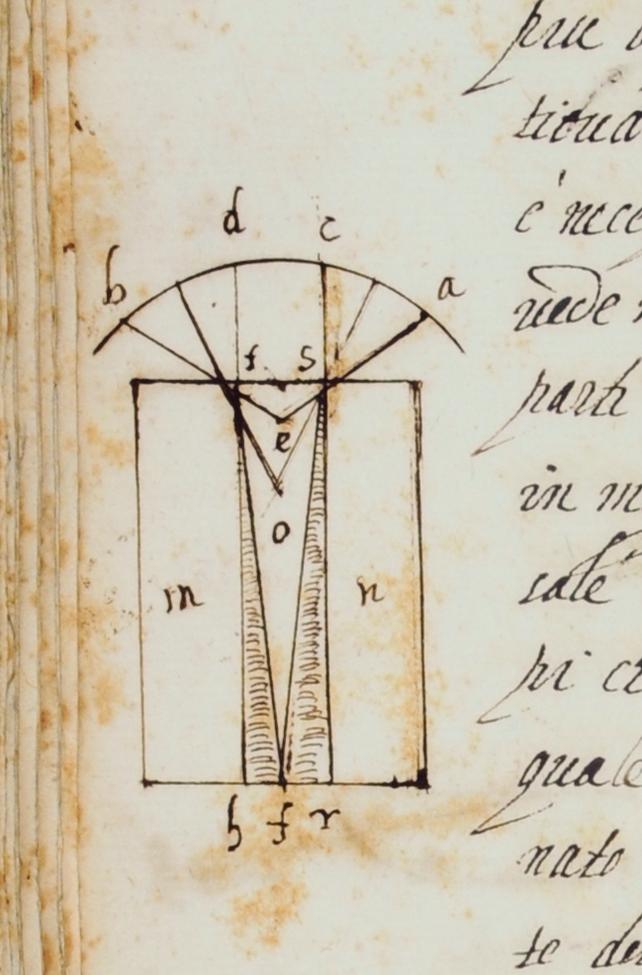 d c
b a
f s
e
o
m n
h f r
prie
titua
è nece
uede
parti
in m
sale
pi cr
quale
nato
te de